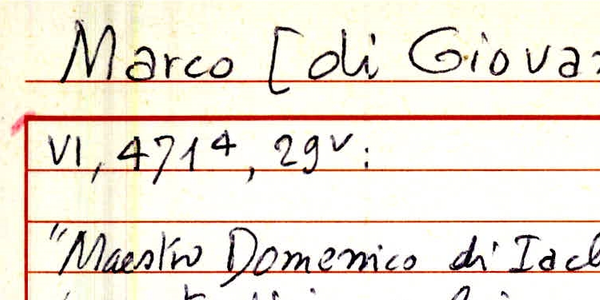 Marco [di Giova
VI, 471⁴, 29ᵛ:
"Maestro Domenico di Iac